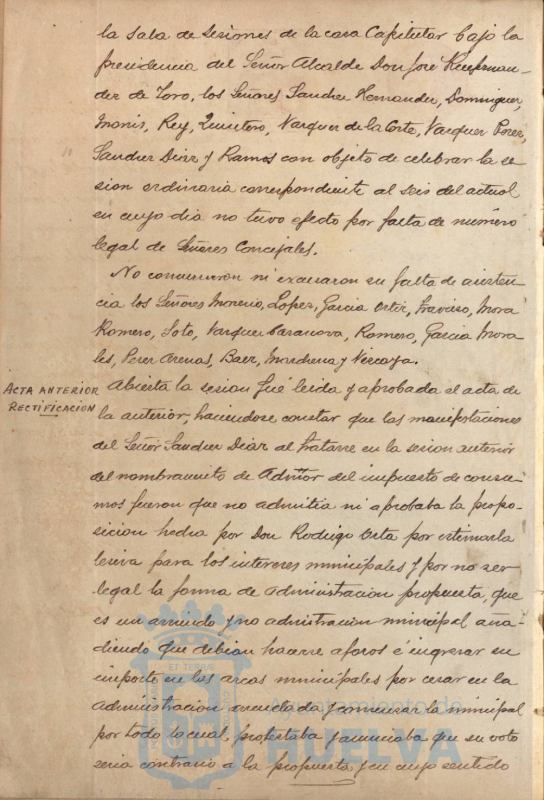 la sala de sesiones de la casa Capitular bajo la
presidencia del Señor Alcalde Don José Hernan-
dez de Toro, los Señores Sanchez Hernandez, Dominguez,
Monis, Rey, Quintero, Vazquez de la Corte, Vazquez Perez,
Sanchez Diaz y Ramos con objeto de celebrar la se
sion ordinaria correspondiente al seis del actual
en cuyo dia no tuvo efecto por falta de numero
legal de Señores Concejales.
No concurrieron ni excusaron su falta de asisten-
cia los Señores Moreno, Lopez, Garcia Ortiz, Mora
Romero, Soto, Vazquez Casanova, Romero, Garcia Mora
les, Perez Arenas, Baez, Marchena y Vizcaya.
ACTA ANTERIOR
RECTIFICACION
Abierta la sesion fué leida y aprobada el acta de
la anterior, haciendose constar que las manifestaciones
del Señor Sanchez Diaz al tratarse en la sesion anterior
del nombramiento de Admor del impuesto de consu-
mos fueron que no admitia ni aprobaba la propo-
sicion hecha por Don Rodrigo Orta por estimarla
lesiva para los intereses municipales y por no ser
legal la forma de administracion propuesta, que
es un arriendo y no admistracion municipal aña-
diendo que debian hacerse aforos é ingresar su
importe en las arcas municipales por cesar en la
administracion arrendada y comenzar la municipal
por todo lo cual, protestaba y anunciaba que su voto
seria contrario a la propuesta y en cuyo sentido
Ayuntamiento de
HUELVA